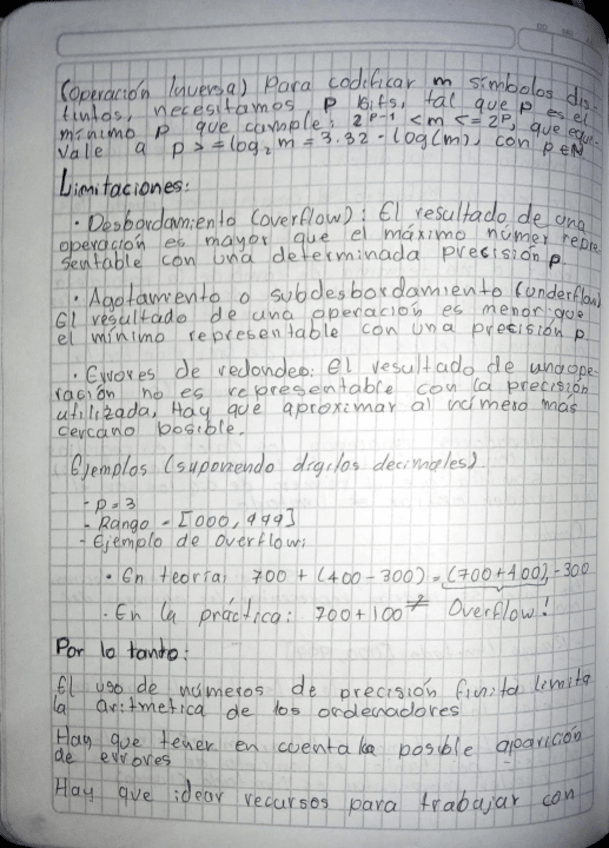 (Operación Inversa) Para codificar m símbolos dis-
tintos, necesitamos p bits, tal que p es el
mínimo p que cumple: 2^p-1 < m <= 2^p, que equi-
vale a p >= log₂m = 3.32 · log(m), con p∈N
Limitaciones:
· Desbordamiento (overflow): El resultado de una
operación es mayor que el máximo númer repre-
sentable con una determinada precisión p.
· Agotamiento o subdesbordamiento (underflow)
El resultado de una operación es menor que
el mínimo representable con una precisión p.
· Errores de redondeo: el resultado de una ope-
ración no es representable con la precisión
utilizada, Hay que aproximar al número más
cercano posible.
Ejemplos (suponiendo dígitos decimales)
- p = 3
- Rango = [000, 999]
- Ejemplo de overflow:
· En teoría: 700 + (400 - 300) = (700 + 400) - 300
· En la práctica: 700 + 100 ≠ Overflow!
Por lo tanto:
El uso de números de precisión finita limita
la aritmetica de los ordenadores
Hay que tener en cuenta la posible aparición
de errores
Hay que idear recursos para trabajar con